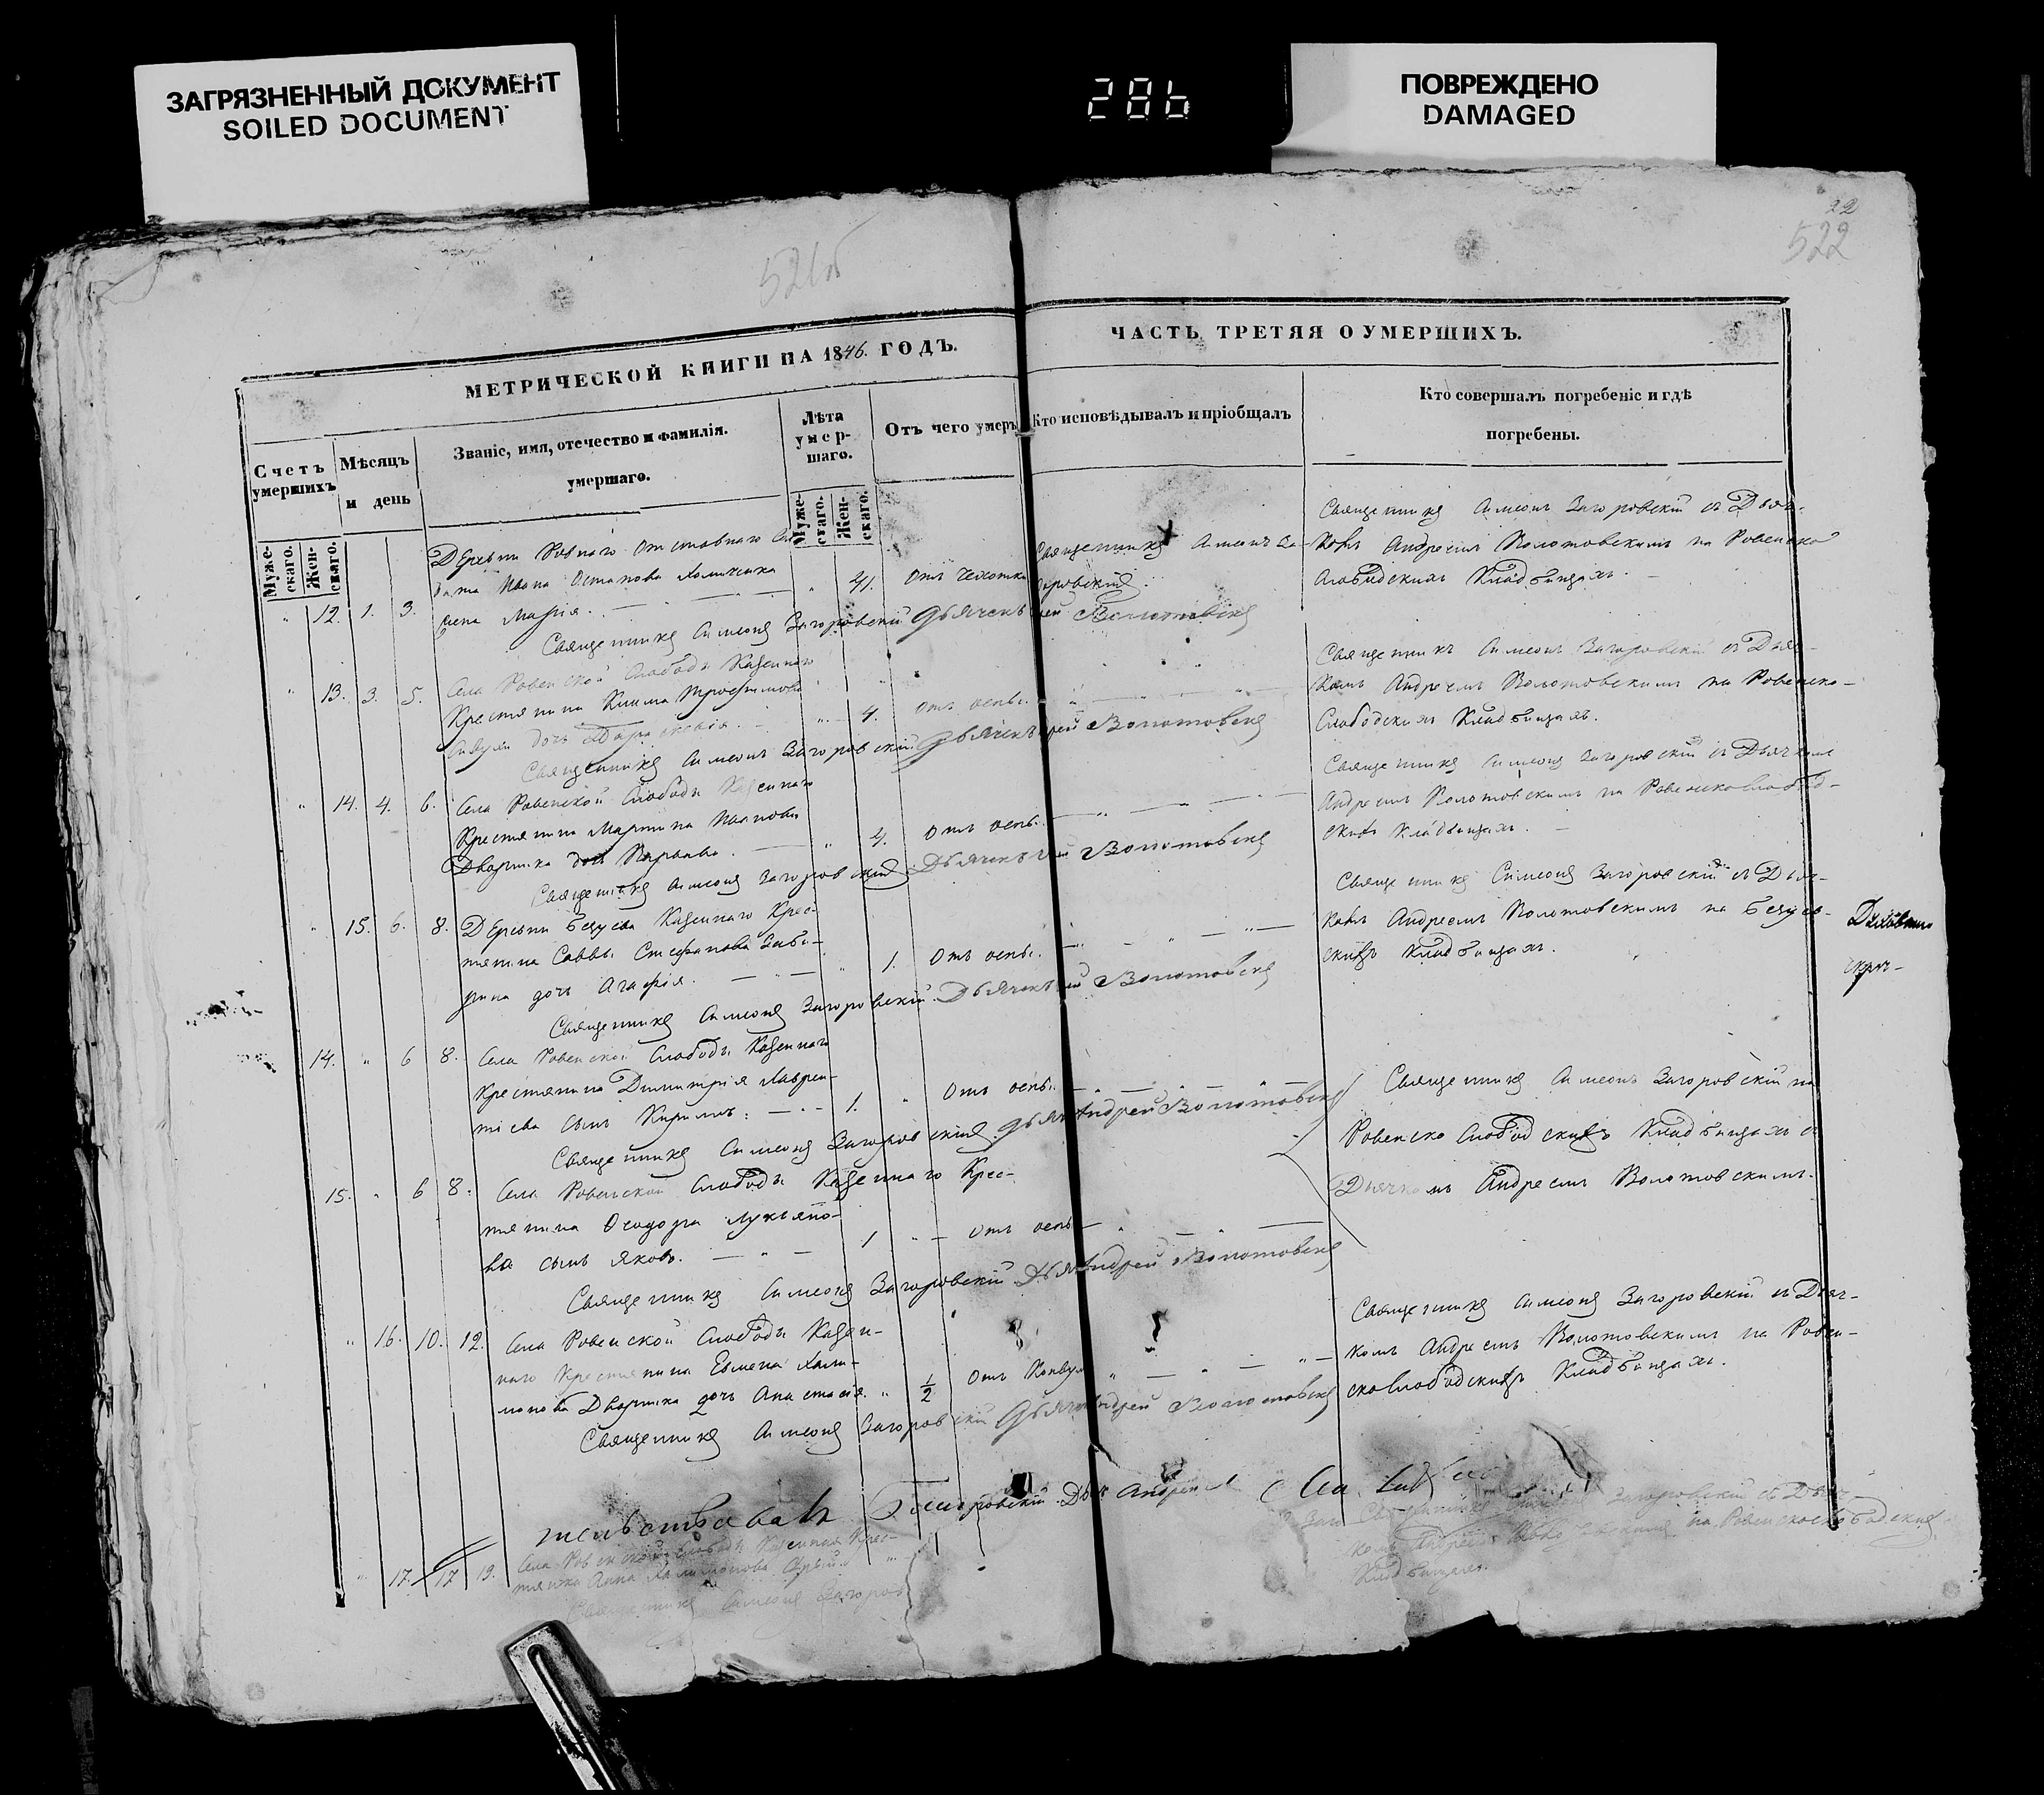 ЗАГРЯЗНЕННЫЙ ДОКУМЕНТ
SOILED DOCUMENT
286
ПОВРЕЖДЕНО
DAMAGED
521об
22
522
МЕТРИЧЕСКОЙ КНИГИ НА 1846. ГОДЪ.
ЧАСТЬ ТРЕТЯЯ О УМЕРШИХЪ.
Счетъ умершихъ
Мѣсяцъ и день
Званіе, имя, отечество и фамилія. умершаго.
Лѣта умер-шаго.
Отъ чего умеръ
Кто исповѣдывалъ и пріобщалъ
Кто совершалъ погребеніе и гдѣ погребены.
Муже-скаго.
Жен-скаго.
Муже-скаго.
Жен-скаго.
12. 1. 3.
Деревни Ровнаго отставнаго Сол
дата Ивана Остапова
жена Марія.
41.
Отъ чахотки
Священникъ Симеонъ За-
горовскій.
Священникъ Симеонъ Загоровскій съ Дьяч-
комъ Андреемъ Волотовскимъ на Ровенско
слободскихъ Кладбищахъ.
Священникъ Симеонъ Загоровскій Дьячекъ Андрей Волотовскій
13. 3. 5.
Села Ровенской Слободы Казеннаго
Крестянина Клима Трофимова
дочь Параскевія.
4.
отъ оспы.
Священникъ Симеонъ Загоровскій съ Дьяч-
комъ Андреемъ Волотовскимъ на Ровенско-
Слободскихъ Кладбищахъ.
Священникъ Симеонъ Загоровскій Дьячекъ Андрей Волотовскій
14. 4. 6.
Села Ровенской Слободы Казеннаго
Крестянина Мартина Иванова
Дворника дочь Варвара.
4.
отъ оспы.
Священникъ Симеонъ Загоровскій съ Дьячкомъ
Андреемъ Волотовскимъ на Ровенскослобод-
скихъ кладбищахъ.
Священникъ Симеонъ Загоровскій Дьячекъ Андрей Волотовскій
15. 6. 8.
Деревни Безуева Казеннаго Крес-
тянина Саввы Стефанова
дочь Агафія.
1.
Отъ оспы.
Священникъ Симеонъ Загоровскій съ Дьяч-
комъ Андреемъ Волотовскимъ на Безуев-
скихъ Кладбищахъ.
Священникъ Симеонъ Загоровскій. Дьячекъ Андрей Волотовскій
14. 6 8.
Села Ровенской Слободы Казеннаго
Крестянина Димитрія Лаврен-
тіева сынъ Кирилъ.
1.
Отъ оспы.
Священникъ Симеонъ Загоровскій на
Ровенско Слободскихъ Кладбищахъ съ
Дьячкомъ Андреемъ Волотовскимъ.
Священникъ Симеонъ Загоровскій Дьяч Андрей Волотовскій
15. 6 8.
Села Ровенской Слободы Казеннаго Крес-
тянина Феодора Лукъяно-
ва сынъ Яковъ.
1
отъ оспы
Священникъ Симеонъ Загоровскій Дьяч Андрей Волотовскій
16. 10. 12.
Села Ровенской Слободы Казен-
наго Крестянина Евмена
Дворника дочь Анастасія.
1/2
Отъ Конвул
Священникъ Симеонъ Загоровскій съ Дьяч-
комъ Андреемъ Волотовскимъ на Ровен-
скослободскихъ Кладбищахъ.
Священникъ Симеонъ Загоровскій Дьячекъ Андрей Волотовскій
17. 17 19.
Села Ровенской Слободы Казенная Крес-
тянка Анна
Священникъ Симеонъ Загоров
Загоровскій съ Дьяч-
комъ Андреемъ на Ровенскослободскихъ
Кладбищахъ.